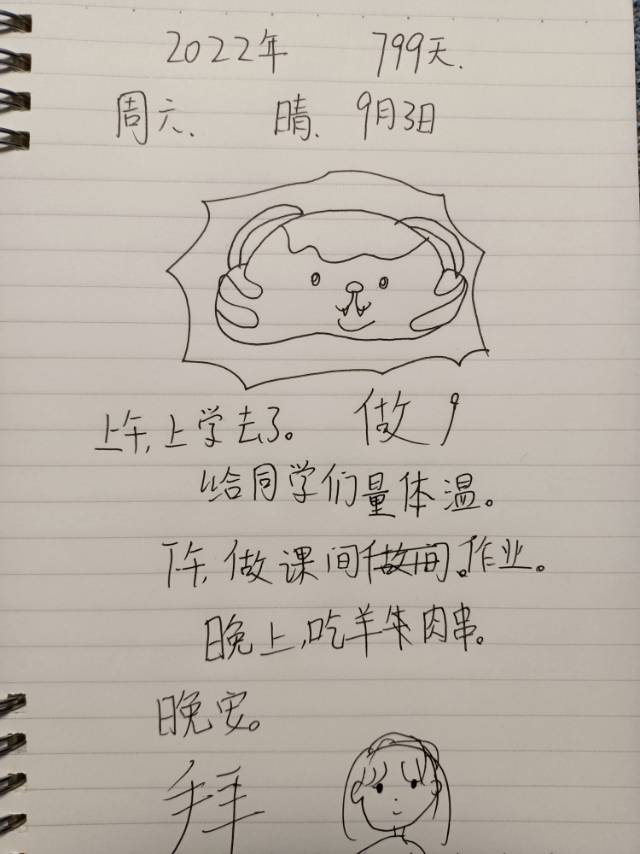 2022年 799天.
周六、 晴、9月3日
上午,上学去了。 做9
给同学们量体温。
下午,做课间做间。作业。
晚上,吃羊朱肉串。
晚安。
拜